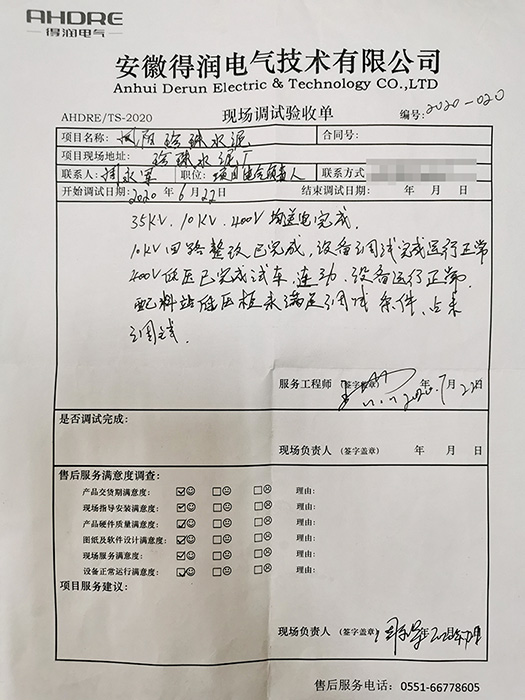 AHDRE
得润电气
安徽得润电气技术有限公司
Anhui Derun Electric & Technology CO.,LTD
AHDRE/TS-2020 现场调试验收单 编号: 2020-020
项目名称: 凤阳珍珠水泥 合同号:
项目现场地址: 珍珠水泥厂
联系人: 职位: 项目 负责人 联系方式:
开始调试日期: 2020年6月22日 结束调试日期: 年 月 日
35KV. 10KV. 400V 均送电完成.
10KV回路整改已完成,设备调试完成运行正常
400V低压已完成试车.连动.设备运行正常.
配料站低压柜未满足调试条件,点未
调试.
服务工程师 (签字盖章) 2020年7月22日
是否调试完成:
现场负责人 (签字盖章) 年 月 日
售后服务满意度调查:
产品交货期满意度: 理由:
现场指导安装满意度: 理由:
产品硬件质量满意度: 理由:
图纸及软件设计满意度: 理由:
现场服务满意度: 理由:
设备正常运行满意度: 理由:
项目服务建议:
现场负责人 (签字盖章)
售后服务电话: 0551-66778605